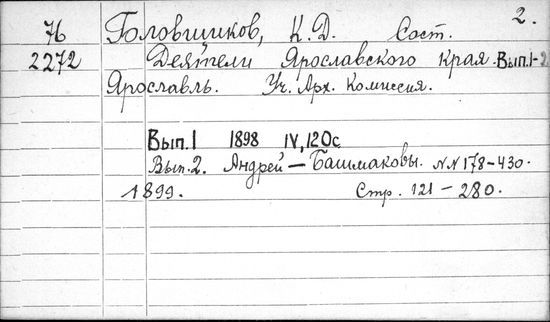 2.
76 Головщиков, К.Д. Сост.
2272 Деятели Ярославского края. Вып. 1-2
Ярославль. Уч. Арх. Комиссия.
Вып. 1 1898 IV, 120с
Вып. 2. Андрей — Башмаковы. NN 178-430.
1899. Стр. 121 — 280.